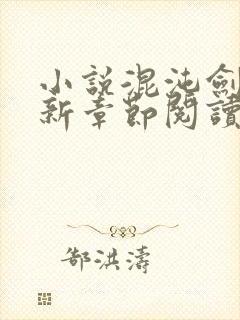 小說混沌劍
新章節閱讀
郜洪濤